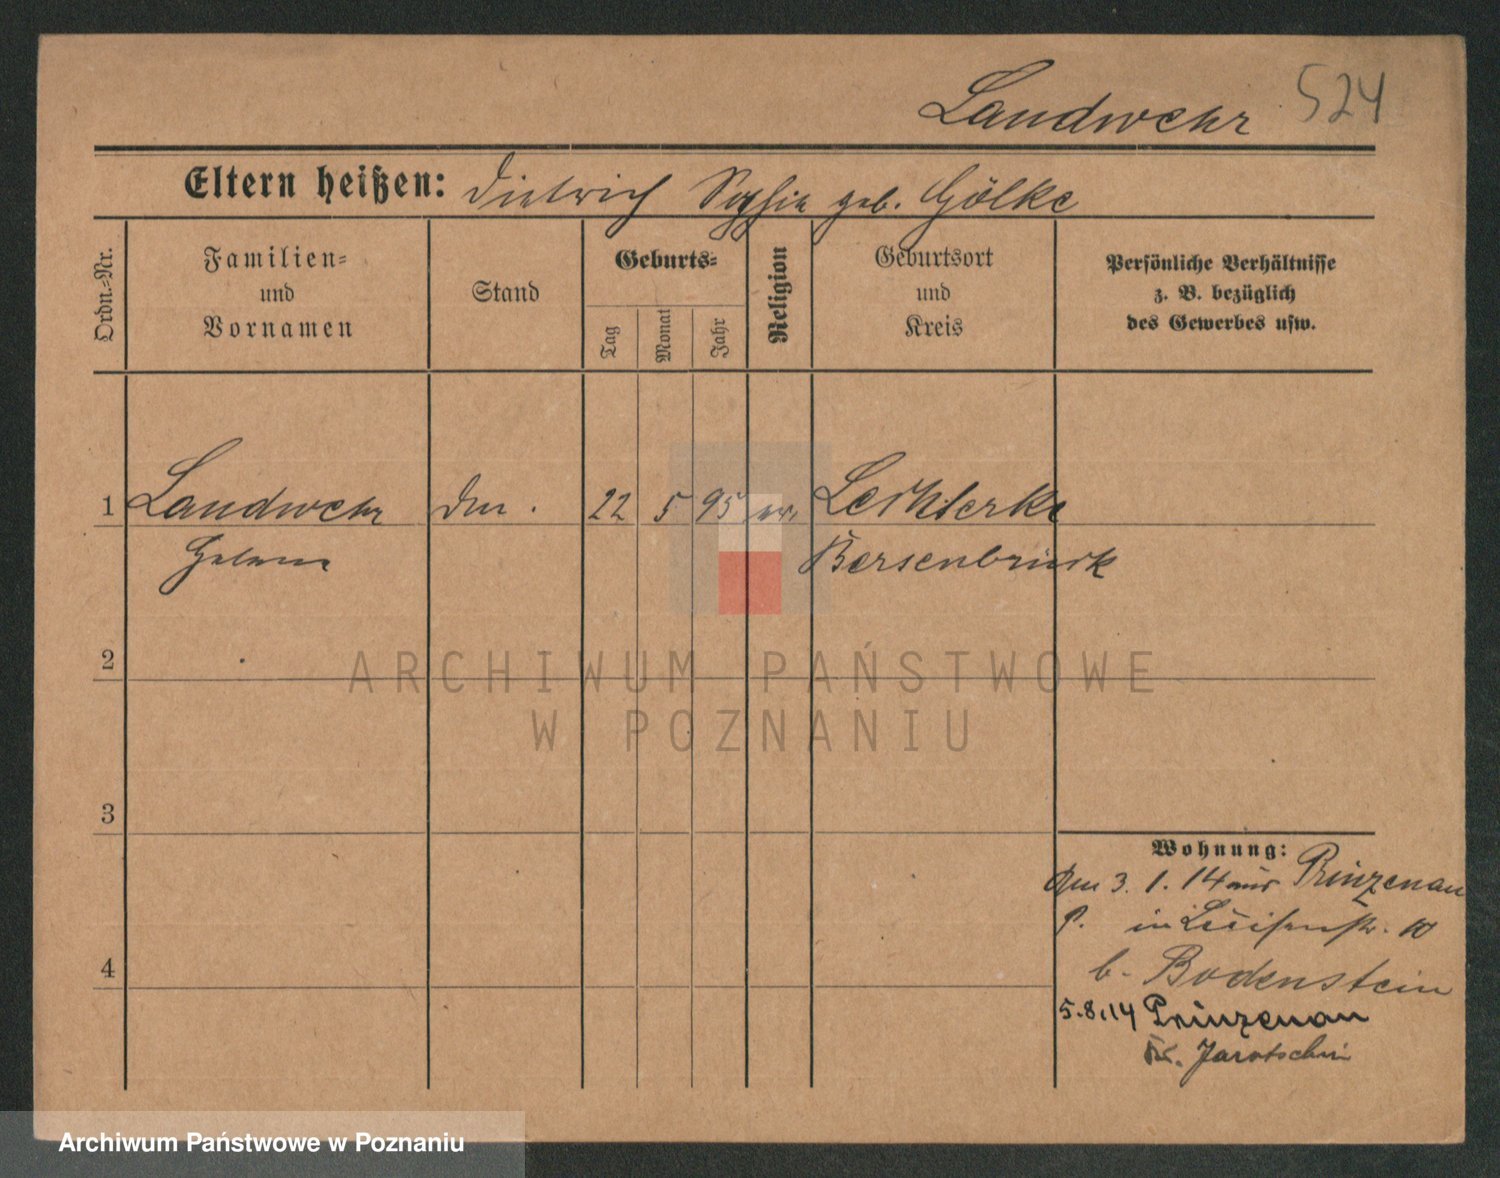 Landwehr 524
Eltern heißen: Dietrich Sophie geb. Gölke
Ordn.-Nr.
Familien-
und
Vornamen
Stand
Geburts-
Tag
Monat
Jahr
Religion
Geburtsort
und
Kreis
Persönliche Verhältnisse
z. B. bezüglich
des Gewerbes usw.
1 Landwehr 22 5 95 ev.
Helene Bersenbrück
2
ARCHIWUM PAŃSTWOWE
W POZNANIU
3
Wohnung:
Am 3. 1. 14 aus Prinzenau
P. in Luisenstr. 10
b. Bodenstein
4
5.8.14 Prinzenau
Kr. Jarotschin
Archiwum Państwowe w Poznaniu